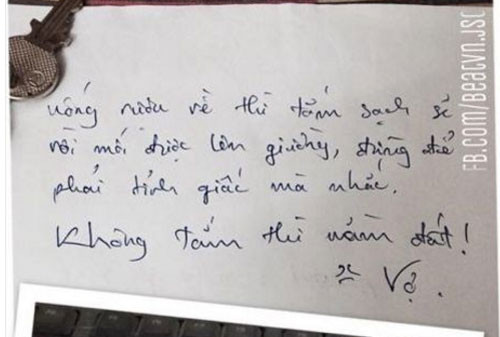 uống rượu về thì tắm sạch sẽ
rồi mới được lên giường, đừng để
phải tỉnh giấc mà nhắc.
Không tắm thì nằm đất!
Vợ.
FB.COM/BEATVN.JSC